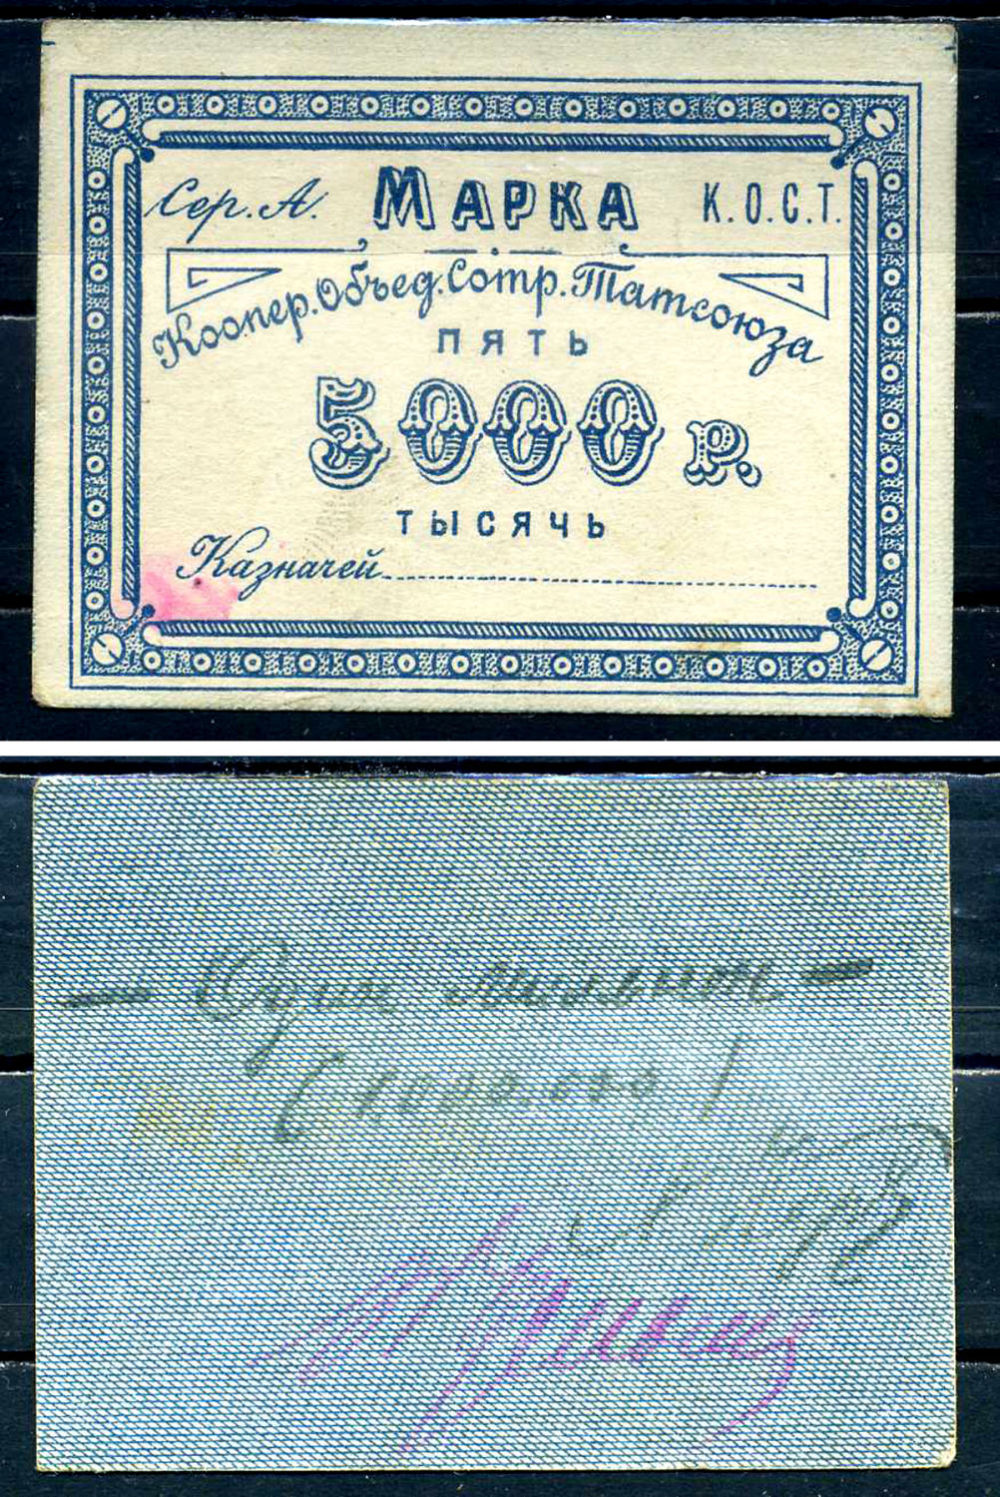 Сер. А. МАРКА К.О.С.Т.
Коопер. Объед. Сотр. Татсоюза
ПЯТЬ
5000 р.
ТЫСЯЧЬ
Казначей
— Один мильон —
(1000.000)